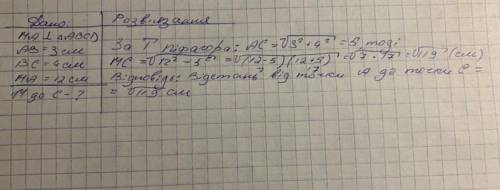 Дано:
MA ⊥ (ABCD)
AB = 3 см
BC = 4 см
MA = 12 см
M до C - ?
Розв'язання
За Т Піфагора: AC = √3² + 4² = 5, тоді
MC = √12² - 5² = √(12-5)(12+5) = √7 · 17 = √119 (см)
Відповідь: Відстань від точки A до точки C =
= √119 см